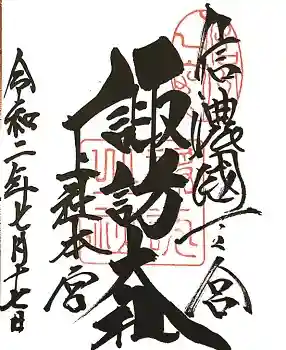 信濃國一之宮
諏訪大社
上社本宮
令和二年七月十七日